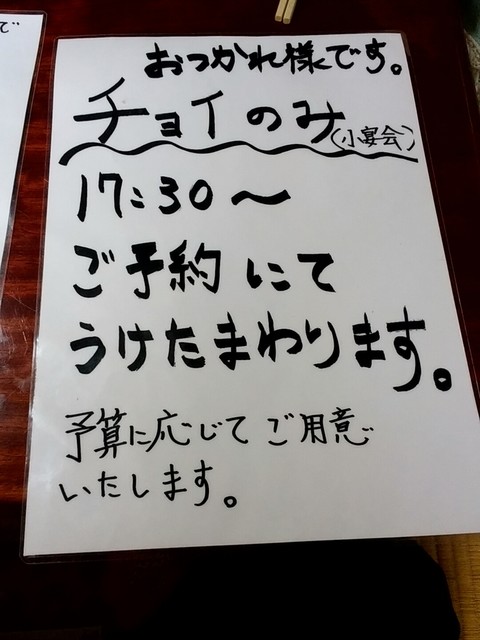 で
おつかれ様です。
チョイのみ(小宴会)
17:30〜
ご予約にて
うけたまわります。
予算に応じてご用意
いたします。